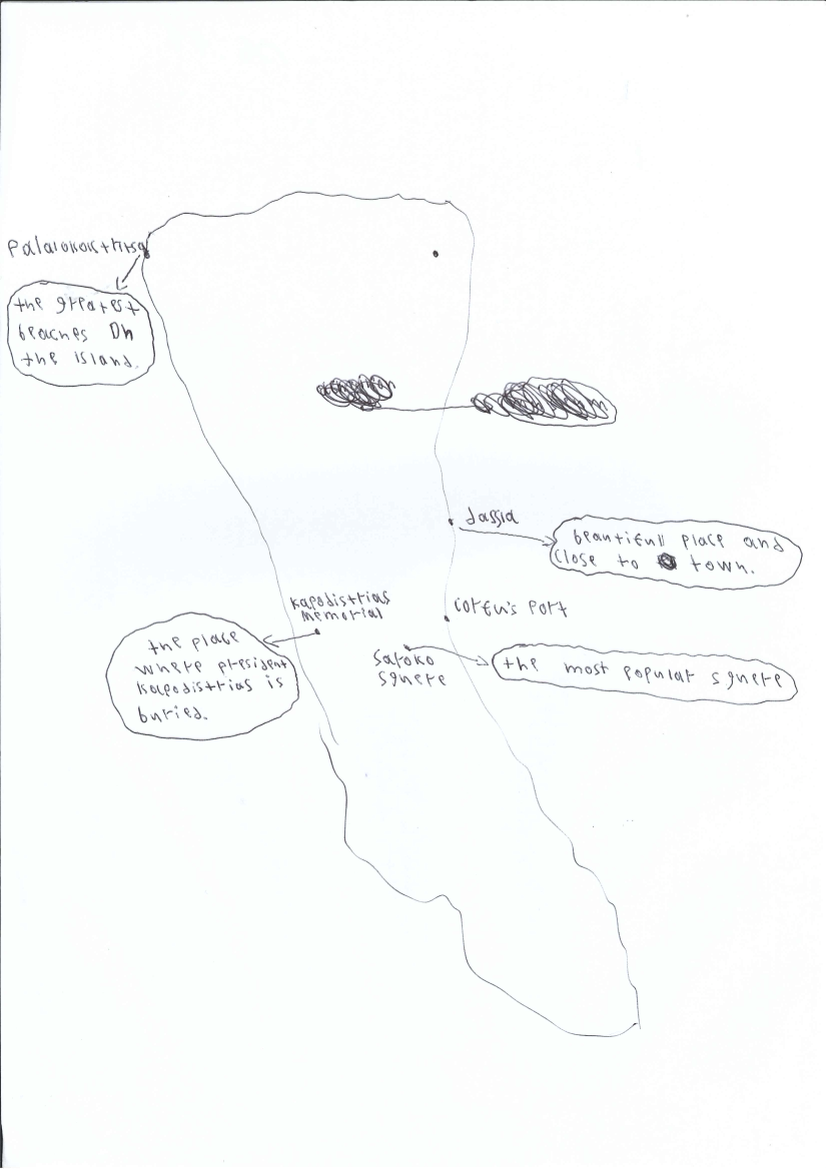 Palaiokastritsa
the greatest
beaches On
the island.
dassia
beautifull place and
close to town.
kapodistrias
memorial
corfu's port
the place
where president
kapodistrias is
buried.
saroko
squere
the most popular squere